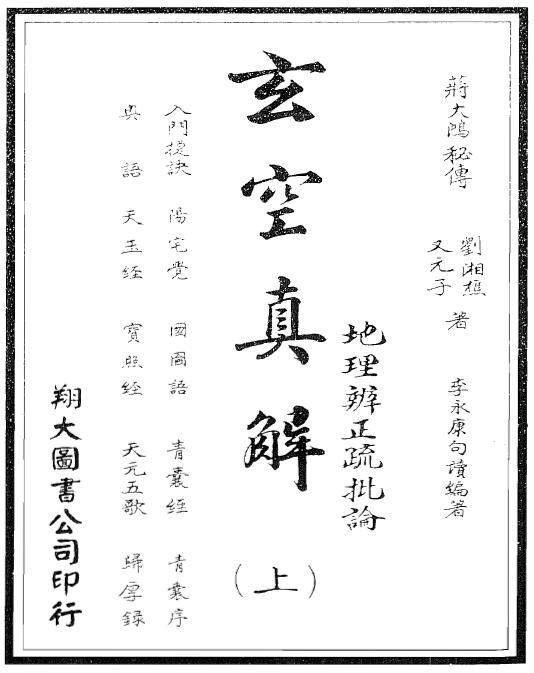 蔣大鴻秘傳 劉湘樵 又元子 著 李永康句讀編著
地理辨正疏批論
玄空真解(上)
入門捷訣 陽宅覺 國圖語 青囊経 青囊序
奥語 天玉経 寶照経 天元五歌 歸厚錄
翔大圖書公司印行